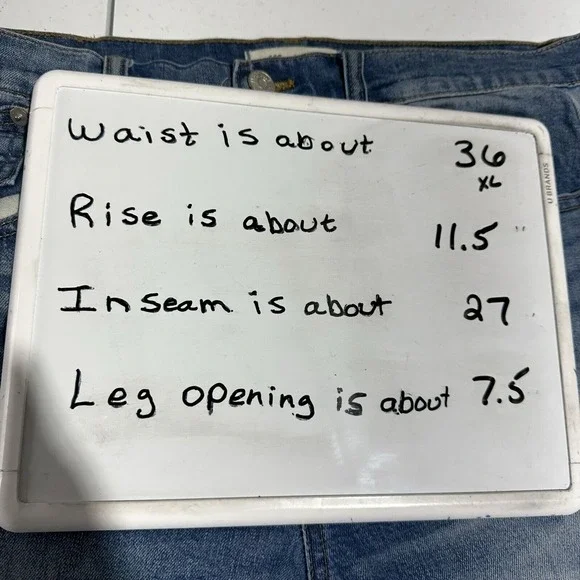 Waist is about 36
XL
Rise is about 11.5"
Inseam is about 27
Leg opening is about 7.5
U BRANDS